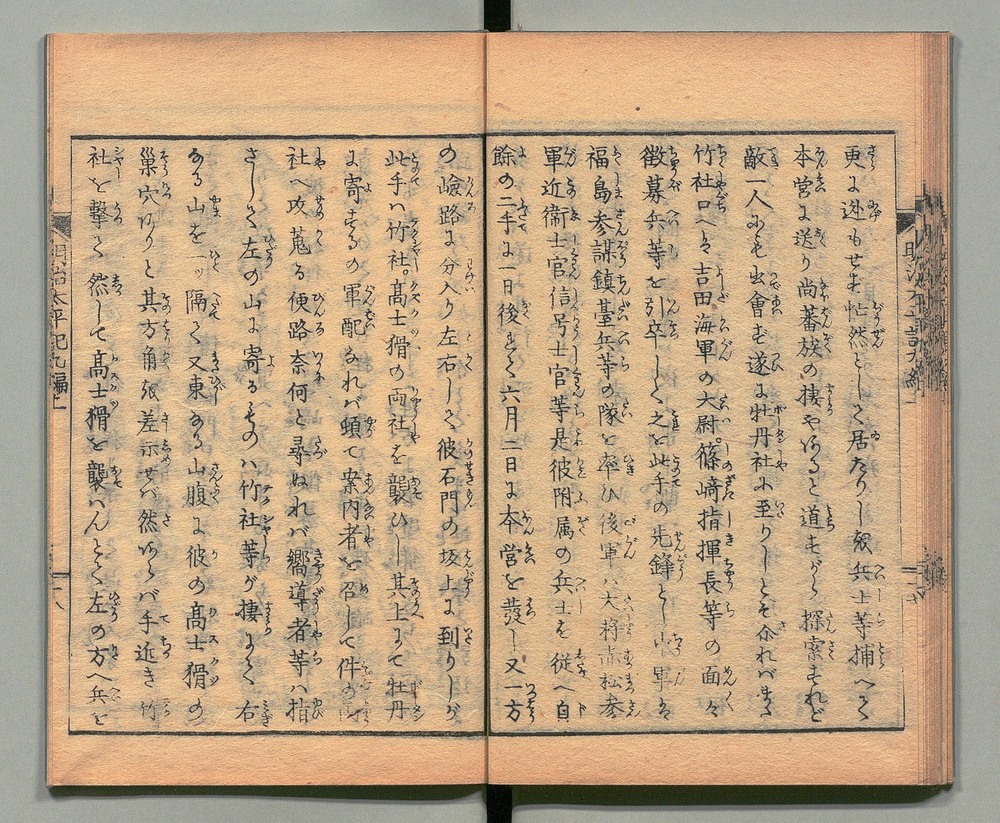 更に逃もせず茫然として居たりし故兵士等捕へて
本営に送り尚蕃族の棲やあると道すがら探索すれど
敵一人にも出會ず遂に牡丹社に至りしとぞ介ればまた
竹社口へは吉田海軍の大尉篠﨑指揮長等の面々
徴募兵等を引卒して之を此手の先鋒とし中軍は
福島参謀鎮臺兵等の隊を率ひ後軍ハ大将赤松参
軍近衛士官信号士官等是彼附属の兵士を従へ自
餘の二手に一日後れて六月二日に本営を發し又一方
の嶮路に分入り左右して彼石門の坂上に到りしが
此手ハ竹社高士猾の両社を襲ひし其上にて牡丹
に寄するの軍配なれバ頓て案内者を召して件の
社へ攻蒐る便路奈何と尋ぬれバ嚮導者等ハ指
さして左の山に寄るものハ竹社等が棲にて右
なる山を一ッ隔て又東なる山腹に彼の高士猾の
巣穴ありと其方角張差示せバ然あらバ手近き竹
社を撃て然して高士猾を襲ハんとて左の方へ兵を
明治太平記九編上